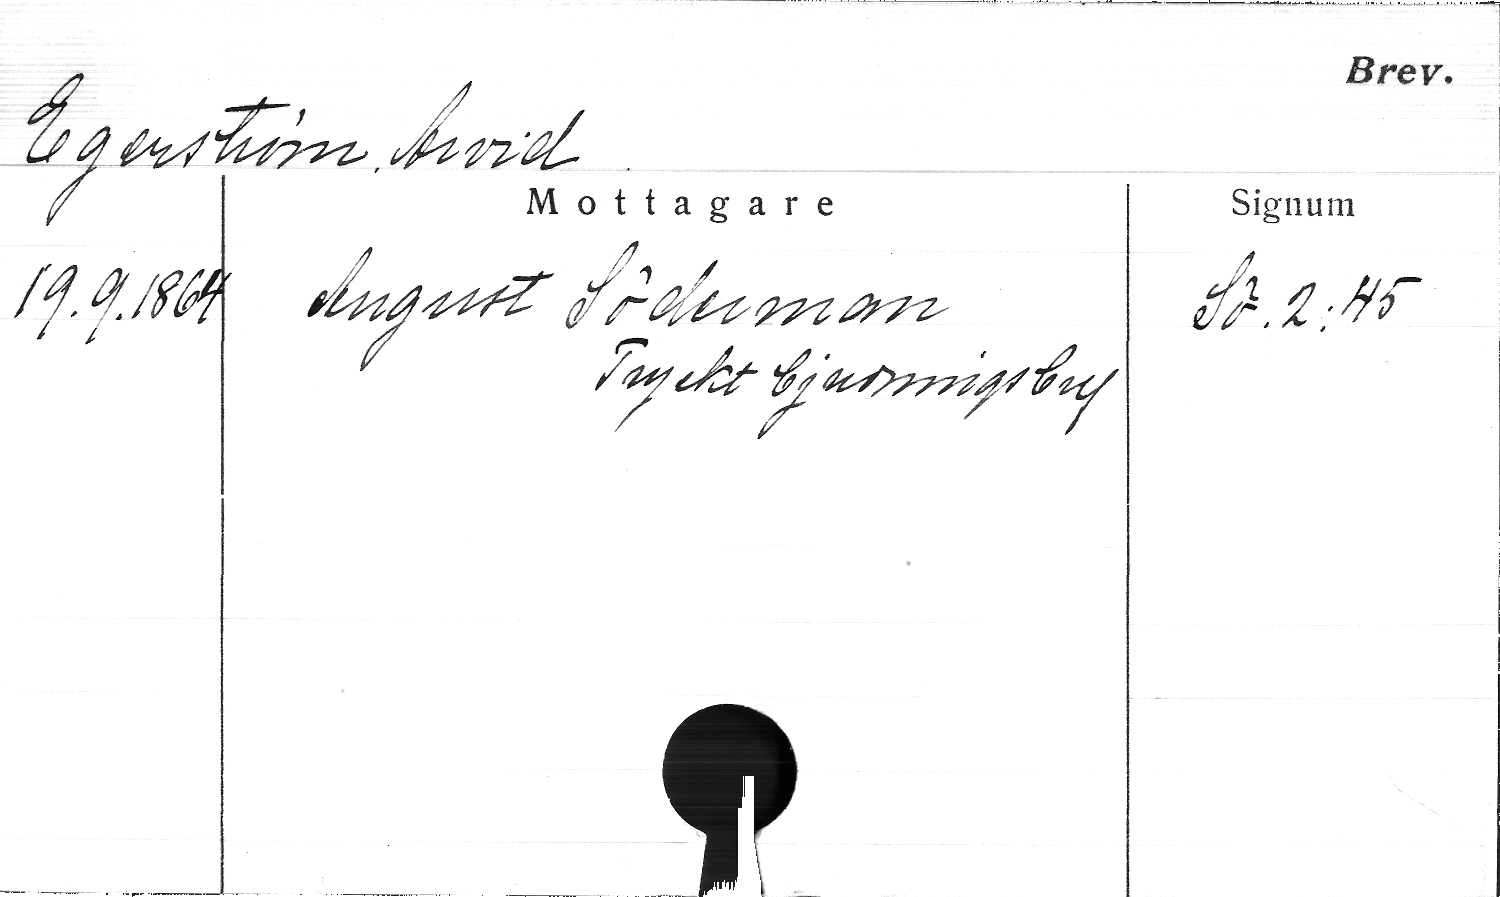 Brev.
Egerström, Arvid
Mottagare
Signum
19.9.1864 August Söderman Sö. 2:45
Tryckt bjudningsbref